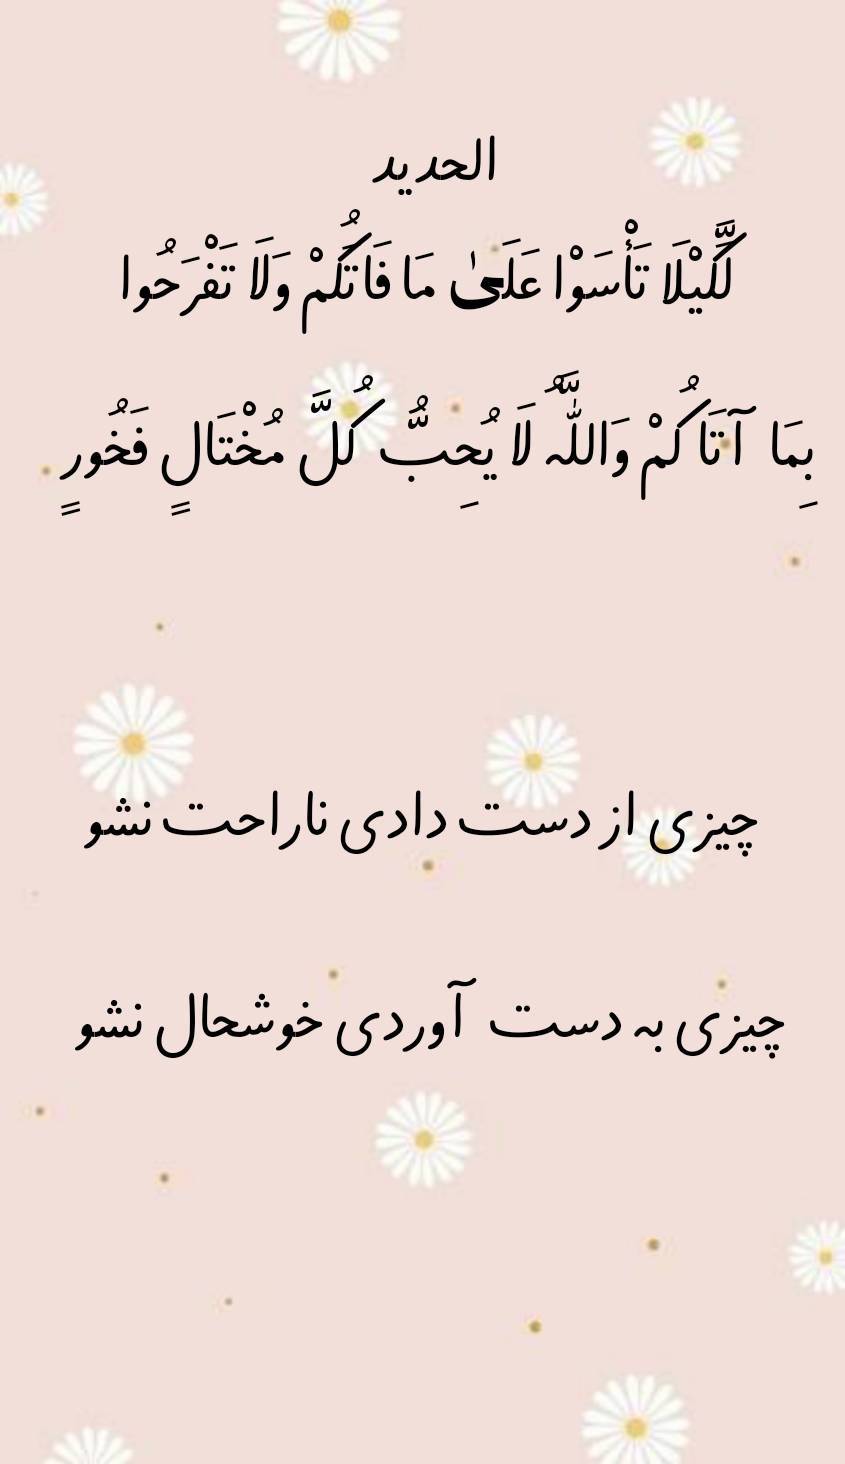 الحدید
لَّكَیْلَا تَأْسَوْا عَلَىٰ مَا فَاتَكُمْ وَلَا تَفْرَحُوا
بِمَا آتَاكُمْ وَاللَّهُ لَا يُحِبُّ كُلَّ مُخْتَالٍ فَخُورٍ
چیزی از دست دادی ناراحت نشو
چیزی به دست آوردی خوشحال نشو